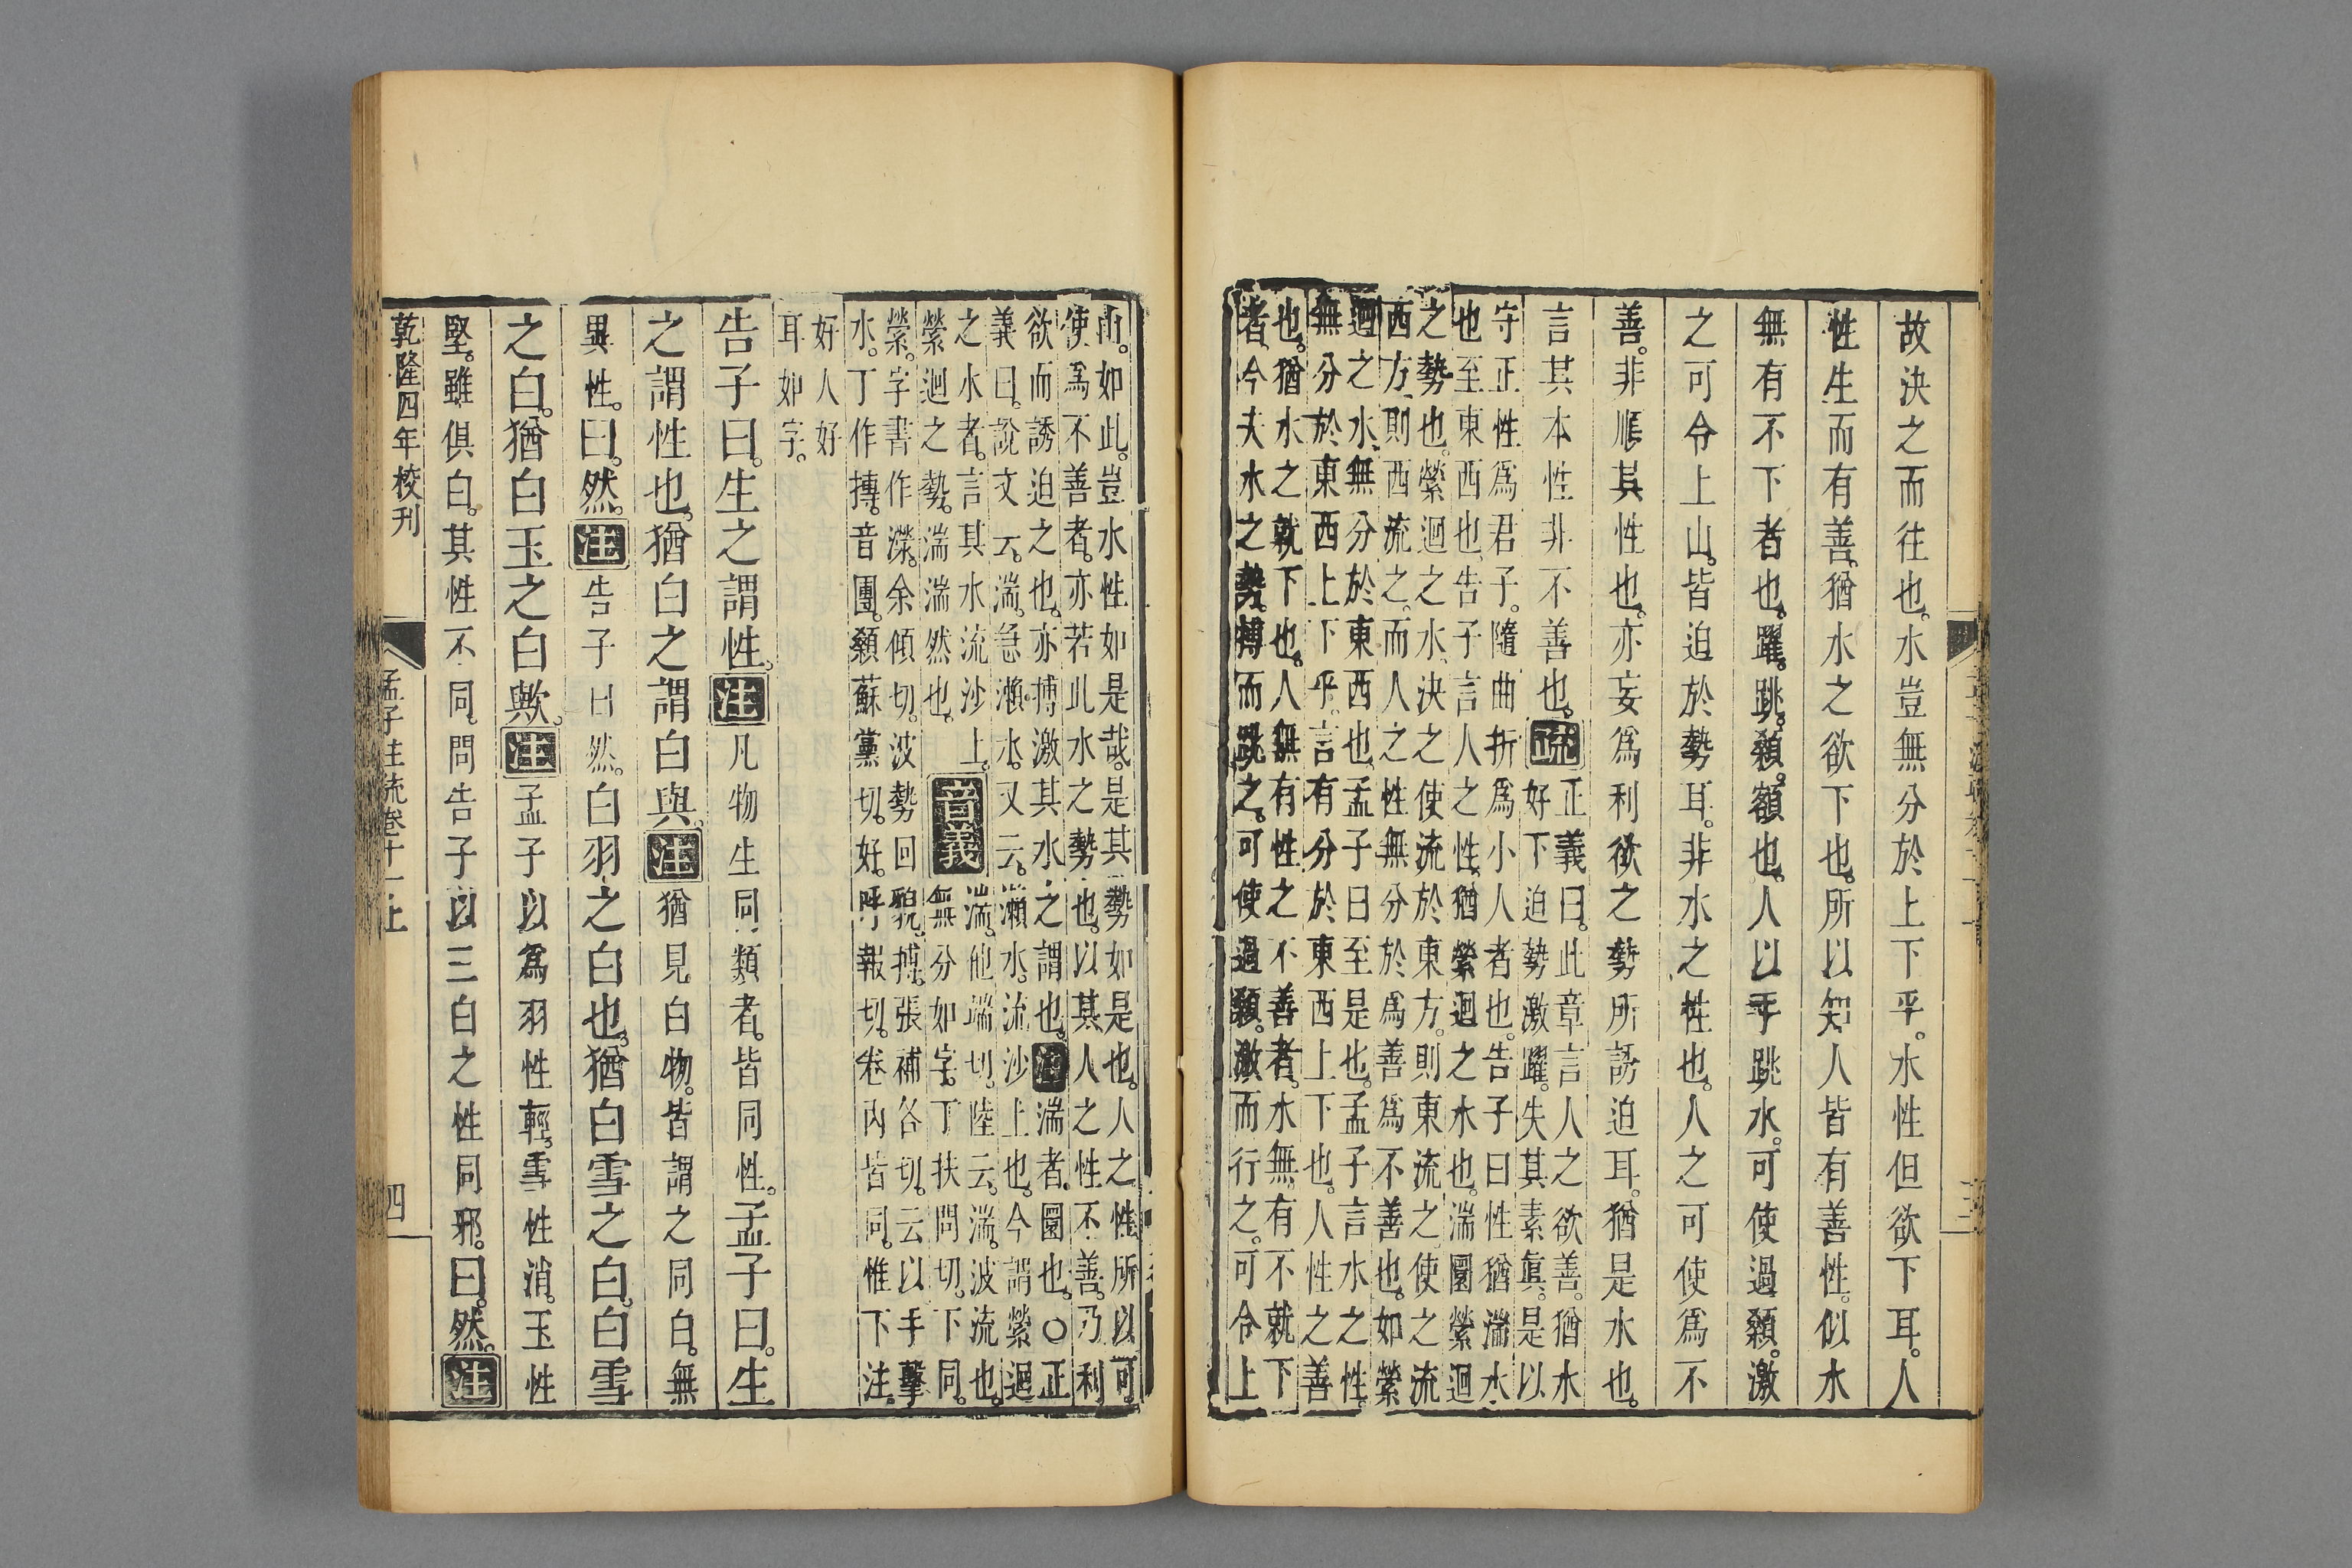 故決之而往也。水豈無分於上下乎。水性但欲下耳。人
性生而有善。猶水之欲下也。所以知人皆有善性。似水
無有不下者也。躍。跳。顙。額也。人以手跳水。可使過顙。激
之可令上山。皆迫於勢耳。非水之性也。人之可使爲不
善。非順其性也。亦妄爲利欲之勢所誘迫耳。猶是水也。
言其本性非不善也。疏
正義曰。此章言人之欲善。猶水
好下迫勢激躍。失其素眞。是以
守正性爲君子。隨曲折爲小人者也。告子曰性猶湍水
也至東西也。告子言人之性。猶縈迴之水也。湍圜縈迴
之勢也。縈迴之水。決之使流於東方。則東流之。使之流
西方。則西流之。而人之性無分於爲善爲不善也。如縈
迴之水無分於東西也。孟子曰至是也。孟子言水之性
無分於東西上下乎。言有分於東西上下也。人性之善
也。猶水之就下也。人無有性之不善者。水無有不就下
者。今夫水之勢。搏而跳之。可使過顙。激而行之。可令上
山。如此。豈水性如是哉。是其勢如是也。人之性所以可
使爲不善者。亦若此水之勢也。以其人之性不善。乃利
欲而誘迫之也。亦搏激其水之謂也。注湍者。圜也。○正
義曰。說文云。湍。急瀨水。又云。瀨水。流沙上也。今謂縈迴
之水者。言其水流沙上。
縈迴之勢。湍湍然也。
音義
湍。他端切。陸云。湍。波流也。
無分如字。丁扶問切。下同。
縈。字書作濴。余傾切。波勢回貌。搏。張補各切。云以手擊
水。丁作摶。音團。顙蘇黨切。好。呼報切。卷內皆同。惟下注。
好人好
耳如字。
告子曰。生之謂性。注凡物生同類者。皆同性。孟子曰。生
之謂性也。猶白之謂白與。注猶見白物。皆謂之同白。無
異性。曰。然。注告子曰然。白羽之白也。猶白雪之白。白雪
之白。猶白玉之白歟。注孟子以爲羽性輕。雪性消。玉性
堅。雖俱白。其性不同。問告子以三白之性同邪。曰。然。注
乾隆四年校刊
孟子注疏卷十一上
四